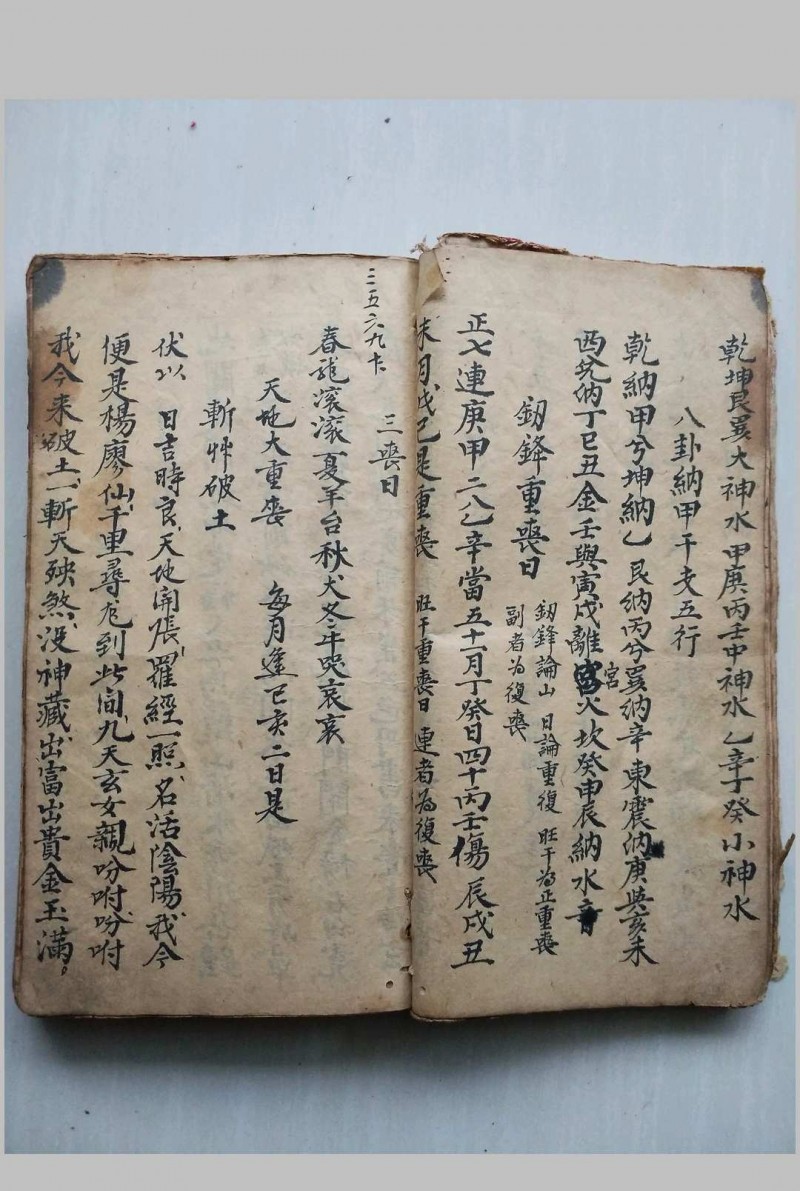 乾坤艮巽大神水甲庚丙壬中神水乙辛丁癸小神水
八卦納甲干支五行
乾納甲兮坤納乙艮納丙兮巽納辛東震納庚與亥未
西兌納丁巳丑金壬與寅戌離宮火坎癸申辰納水音
宮
釰鋒重喪日
釰鋒論山 日論重復 旺干為正重喪
副者為復喪
正七連庚甲二八乙辛當五十一月丁癸日四十丙壬傷辰戌丑
未月戊己是重喪 旺干重喪日 連者為復喪
三五六九卡
三喪日
春龍滚滚夏羊台秋犬冬牛哭哀哀
天地大重喪 每月逢巳亥二日是
斬艸破土
伏以 日吉時良天地開張羅經一照名活陰陽我今
便是楊廖仙千里尋龙到此间九天玄女親吩咐吩咐
我今来破土一斬天殃煞没神藏出富出貴金玉滿。